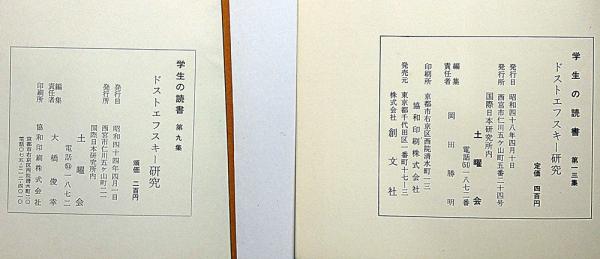 学生の読書 第一三集
ドストエフスキー研究
定価 四百円
発行日 昭和四十八年四月十日
発行所 西宮市仁川五ケ山町五番二十四号
国際日本研究所内
土曜会
電話(51)一八七二番
編集責任者 岡田勝明
印刷所 京都市右京区西院清水町一三
協和印刷株式会社
発売元 東京都千代田区一番町十七ー三
株式会社 創文社
学生の読書 第九集
ドストエフスキー研究
頒価 二百円
発行日 昭和四十四年四月一日
発行所 西宮市仁川五ケ山町二ー
国際日本研究所内
土曜会
電話(51)一八七二
編集責任者 大橋俊幸
印刷所 協和印刷株式会社
京都市右京区西院清水町一三